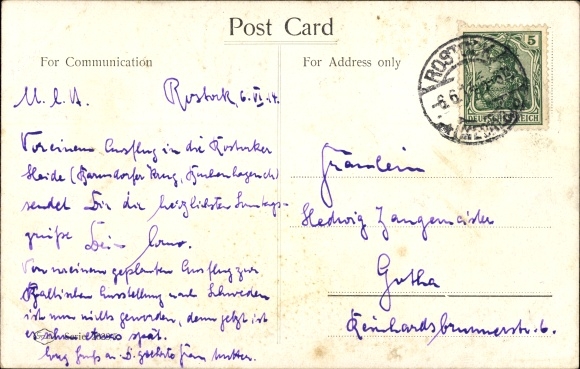 Post Card
For Communication
For Address only
M. l. A. Rostock, 6. VI. 14.
Vor einem Ausflug in die Rostocker
Heide (
sendet Dir die herzlichsten Sonntags-
grüße Dein
Von meinem geplanten Ausflug zur
Baltischen Ausstellung nach Schweden
ist nun nichts geworden, denn jetzt ist
es schon etwas spät.
Gruß an D. Frau Mutter.
Fräulein
Hedwig Zangemeister
Gotha
Reinhardsbrunnerstr. 6.
ROSTOCK
6.6.
5
DEUTSCHES REICH
Serie